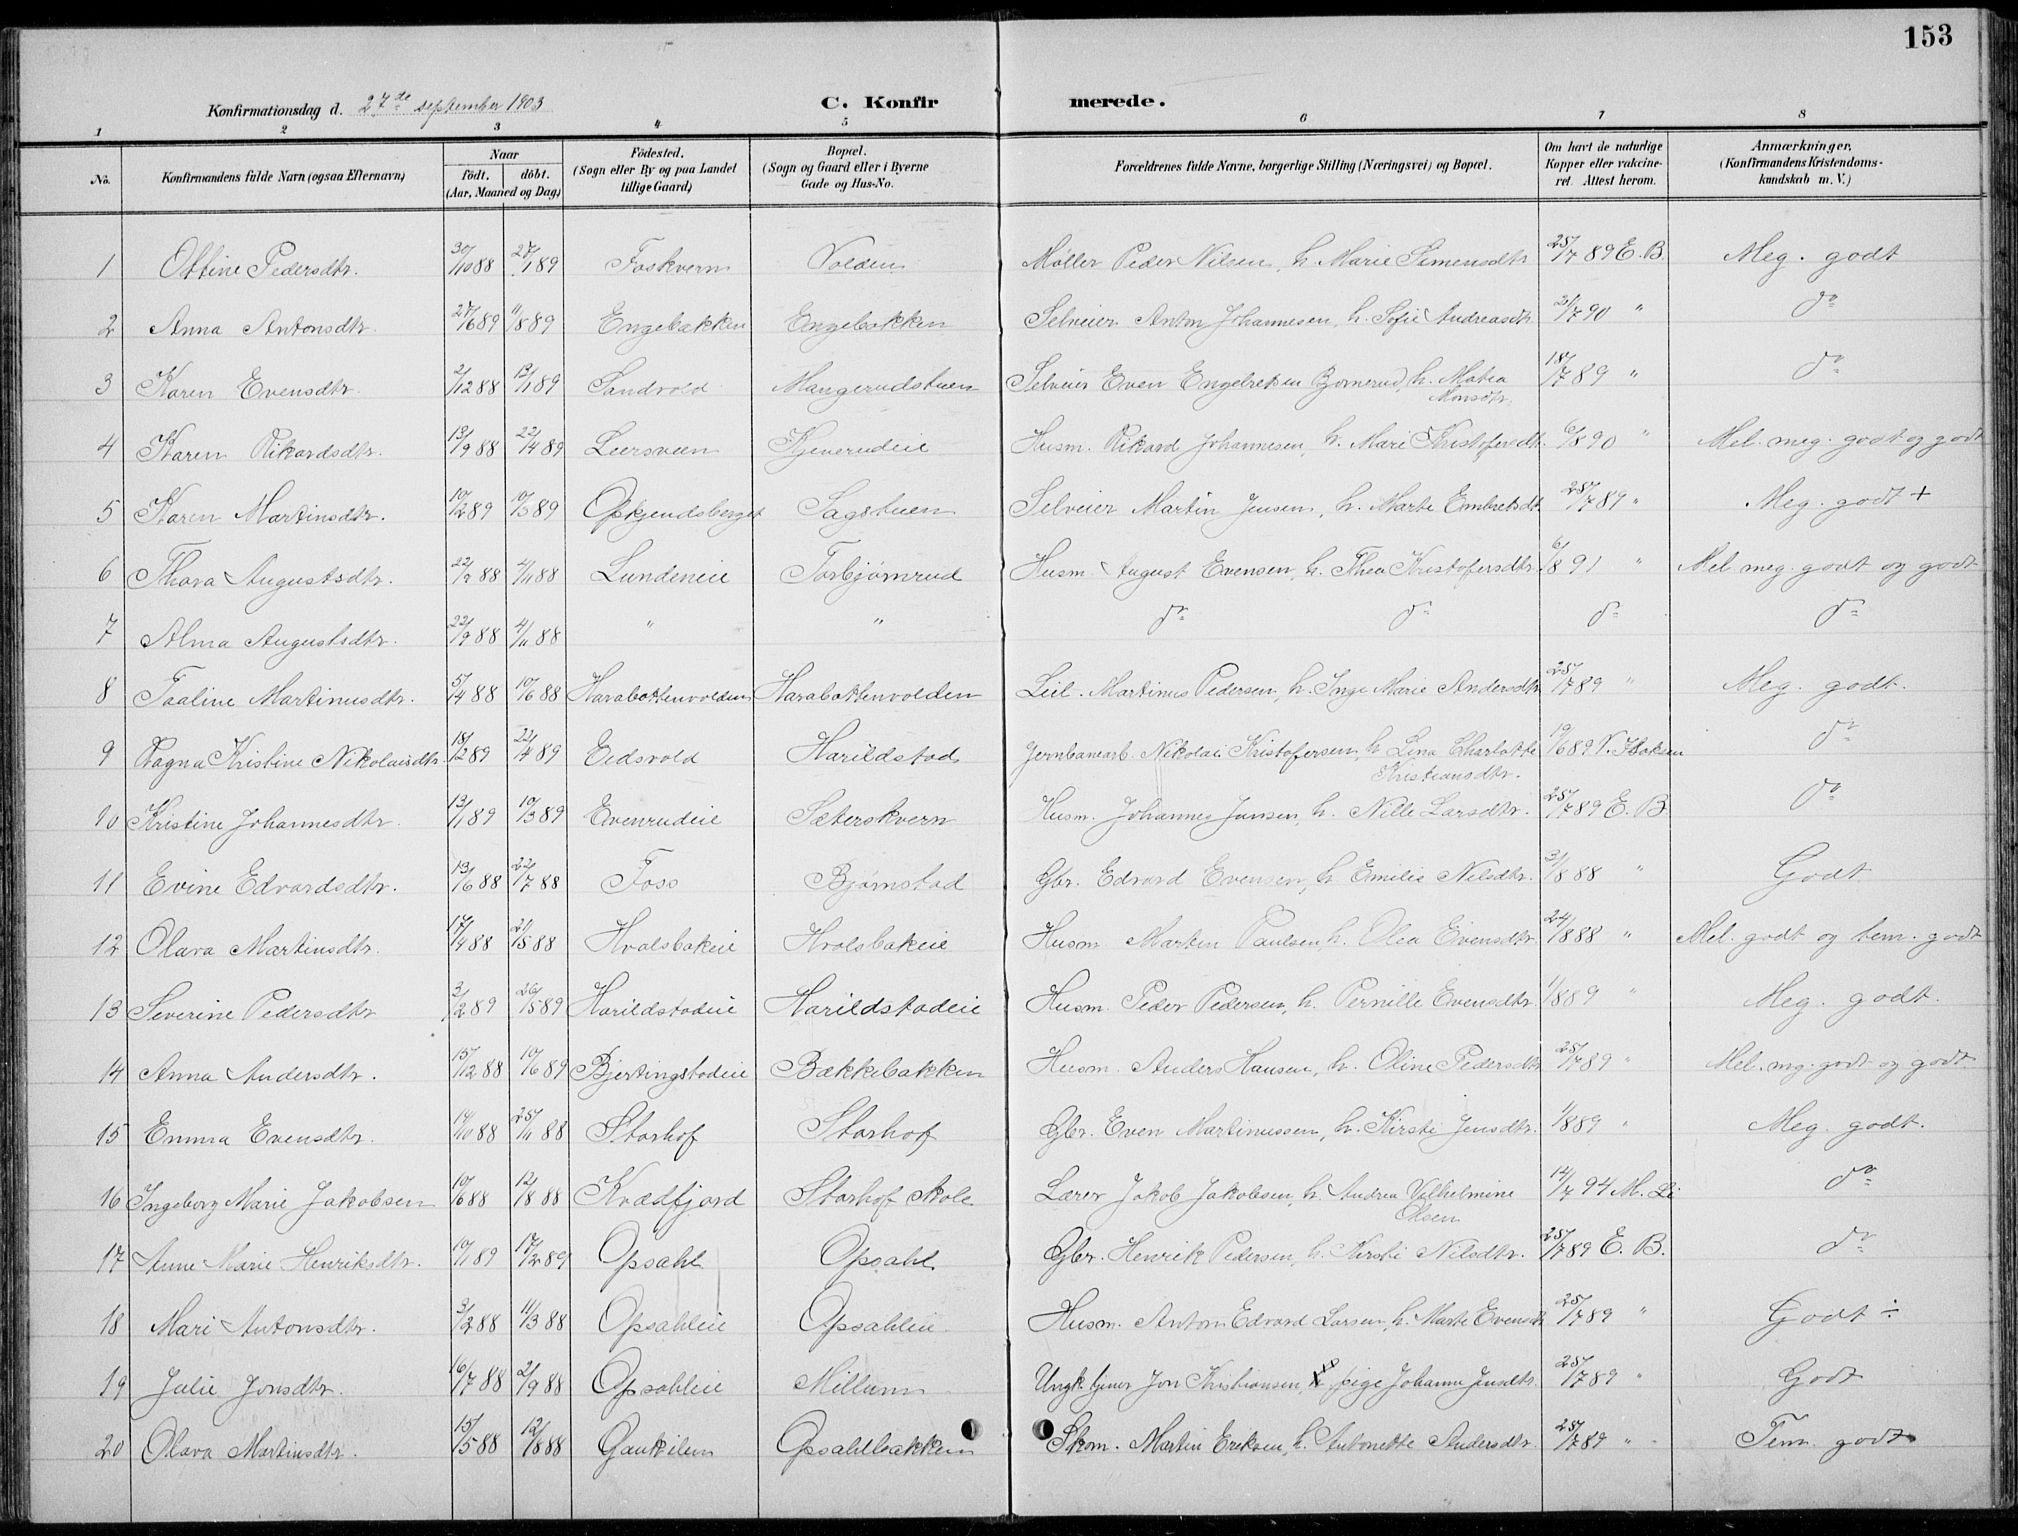 153
Konfirmationsdag d. 27de september 1903
C. Konfirmerede.
1 2 3 4 5 6 7 8
No. Konfirmandens fulde Navn (ogsaa Efternavn) Naar født. døbt. (Aar, Maaned og Dag) Födested. (Sogn eller By og paa Landet tillige Gaard) Bopæl. (Sogn og Gaard eller i Byerne Gade og Hus-No. Forældrenes fulde Navne, borgerlige Stilling (Næringsvei) og Bopæl. Om havt de naturlige Kopper eller vakcineret. Attest herom. Anmærkninger, (Konfirmandens Kristendomskundskab m. V.)
1 Ottine Pedersdtr. 30/10 88 27/1 89 Foskvern Volden Møller Peder Nilsen, h. Marie Simensdtr 25/7 89 E. B. Meg. godt
2 Anna Antonsdtr. 27/6 89 11/8 89 Engebakken Engebakken Selveier Anton Johannesen, h. Sofie Andreasdtr 21/7 90 " do
3 Karen Evensdtr. 2/12 88 13/1 89 Sandvold Mangerudstuen Selveier Even Engebretsen Bjornerud, h. Matea Monsdtr. 18/7 89 " do
4 Karen Rikardsdtr. 13/9 88 22/4 89 Leersveen Kjeverudeie Husm. Rikard Johannesen, h. Mari Kristofersdtr. 6/8 90 " Mel. meg. godt og godt
5 Karen Martinsdtr. 10/2 89 10/3 89 Opkjendsberget Sagstuen Selveier Martin Jensen, h. Marte Embretsdt. 25/7 89 " Meg. godt +
6 Thora Augustsdtr. 22/9 88 4/11 88 Lundeneie Torbjørnrud Husm. August Evensen, h. Thea Kristofersdtr. 6/8 91 " Mel meg. godt og godt
7 Alma Augustsdtr. 22/9 88 4/11 88 " " do do do do
8 Taaline Martinusdtr. 5/4 88 10/6 88 Harabottenvolden Harabottenvolden Leil. Martinus Pedersen, h. Inge Marie Andersdtr 25/7 89 " Meg. godt.
9 Ragna Kristine Nikolaisdtr. 18/2 89 22/4 89 Eidsvold Harildstad Jernbanearb. Nikolai Kristofersen, h. Lina Charlotte Kristiansdtr. 19/6 89 do
10 Kristine Johannesdtr. 13/1 89 10/3 89 Evenrudeie Sæterskvern Husm. Johannes Jansen, h. Nille Larsdtr. 25/7 89 E. B. do
11 Evine Edvardsdtr. 13/6 88 22/7 88 Foss Bjørnstad Gbr. Edvard Evensen, h. Emilie Nilsdtr. 31/8 88 " Godt
12 Olava Martinsdtr. 17/4 88 21/5 88 Hvalsbakeie Hvalsbakeie Husm. Martin Paulsen, h. Olea Evensdtr. 24/8 88 " Mel. godt og tem. godt
13 Severine Pedersdtr 3/2 89 26/5 89 Harildstadeie Harildstadeie Husm. Peder Pedersen, h. Pernille Evensdtr. 1/8 89 " Meg. godt.
14 Anna Andersdtr. 15/12 88 10/6 89 Bjertingstadeie Bækkebakken Husm. Anders Hansen, h. Oline Pedersdtr 25/7 89 " Mel. mg. godt og godt
15 Emma Evensdtr. 14/10 88 25/11 88 Storhof Storhof Gbr. Even Martinussen, h. Kirsti Jensdtr. 1/8 89 " Meg. godt.
16 Ingeborg Marie Jakobsen 10/6 88 12/8 88 Kvædfjord Storhof skole Lærer Jakob Jakobsen, h. Andrea Vilhelmine Olsen 14/7 94 M. Li do
17 Anne Marie Henriksdtr. 10/1 89 17/2 89 Opsahl Opsahl Gbr. Henrik Pedersen, h. Kirsti Nilsdtr. 25/7 89 E. B. do
18 Mari Antonsdtr. 3/2 88 11/3 88 Opsahleie Opsahleie Husm. Anton Edvard Larsen, h. Marte Evensdt 25/7 89 " Godt ÷
19 Julie Jonsdtr. 16/7 88 2/9 88 Opsahleie Millum Ungk. tjener Jon Kristiansen, pige Johanne Jensdtr. 25/7 89 " Godt
20 Olava Martinsdtr. 15/5 88 12/8 88 Gaukilen Opsahlbakken Skom. Martin Eriksen, h. Antonette Andersdtr. 25/7 89 " Tem. godt